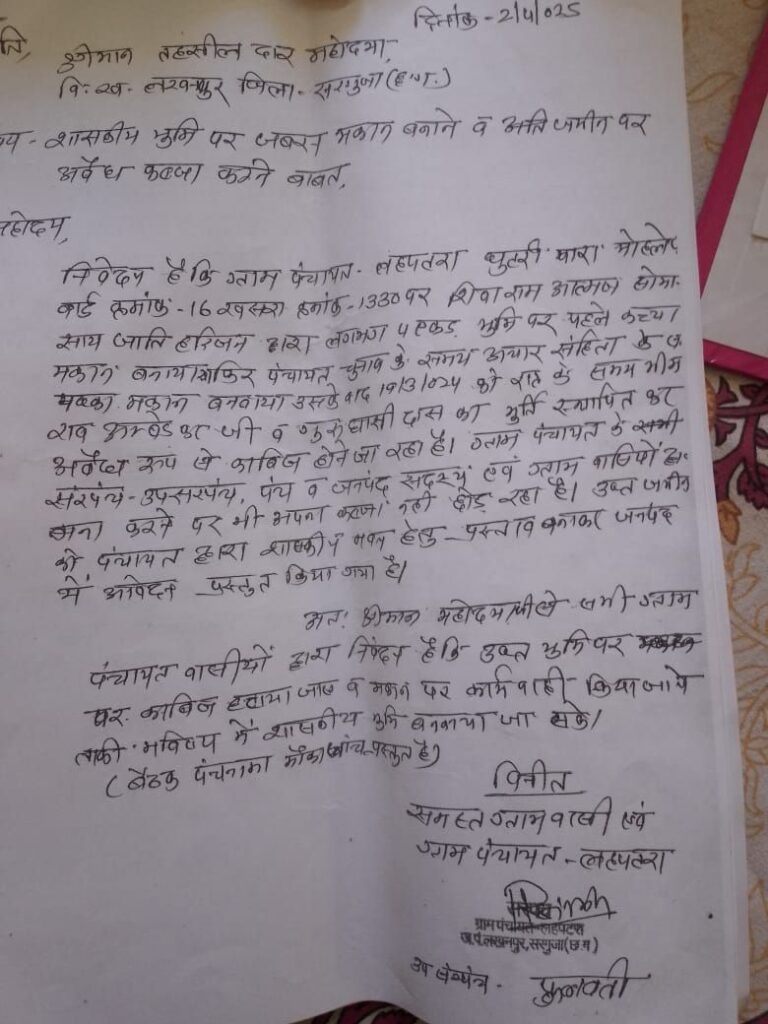 दिनांक - 2/4/025
ति,
श्रीमान तहसील दार महोदया,
वि. ख. लखनपुर जिला - सरगुजा (छ.ग.)
षय - शासकीय भूमि पर जबरन मकान बनाने व अति जमीन पर
अवैध कब्जा करने बाबत्,
महोदय,
निवेदन है कि ग्राम पंचायत - लहपटरा मोहल्ले
वार्ड क्रमांक - 16 खसरा क्रमांक - 1330 पर शिवा राम आत्मज
साय जाति हरिजन द्वारा लगभग एकड़ भूमि पर पहले कच्चा
मकान बनाया फिर पंचायत चुनाव के समय आचार संहिता के
पक्का मकान बनवाया उसके बाद 19/3/025 को रात के समय भीम
राव अम्बेडकर जी व गुरु घासी दास का मुर्ति स्थापित कर
अवैध रूप से काबिज होने जा रहा है। ग्राम पंचायत के सभी
सरपंच - उपसरपंच, पंच व जनपद सदस्य एवं ग्राम वासियों
मना करने पर भी अपना कब्जा नही छोड़ रहा है। उक्त जमीन
को पंचायत द्वारा शासकीय भवन हेतु प्रस्ताव बनाकर जनपद
में आवेदन प्रस्तुत किया गया है।
अतः श्रीमान महोदया से सभी ग्राम
पंचायत वासीयों द्वारा निवेदन है कि उक्त भूमि पर
पर काबिज हटाया जाए व मकान पर कार्यवाही किया जाये
ताकी भविष्य में शासकीय भूमि बनवाया जा सके।
(बैठक पंचनामा मौका जांच प्रस्तुत है)
विनीत
समस्त ग्राम वासी एवं
ग्राम पंचायत - लहपटरा
सरपंच
ग्राम पंचायत-लहपटरा
ज.पं.लखनपुर,सरगुजा(छ.ग)
उप सरपंच - फुलवती